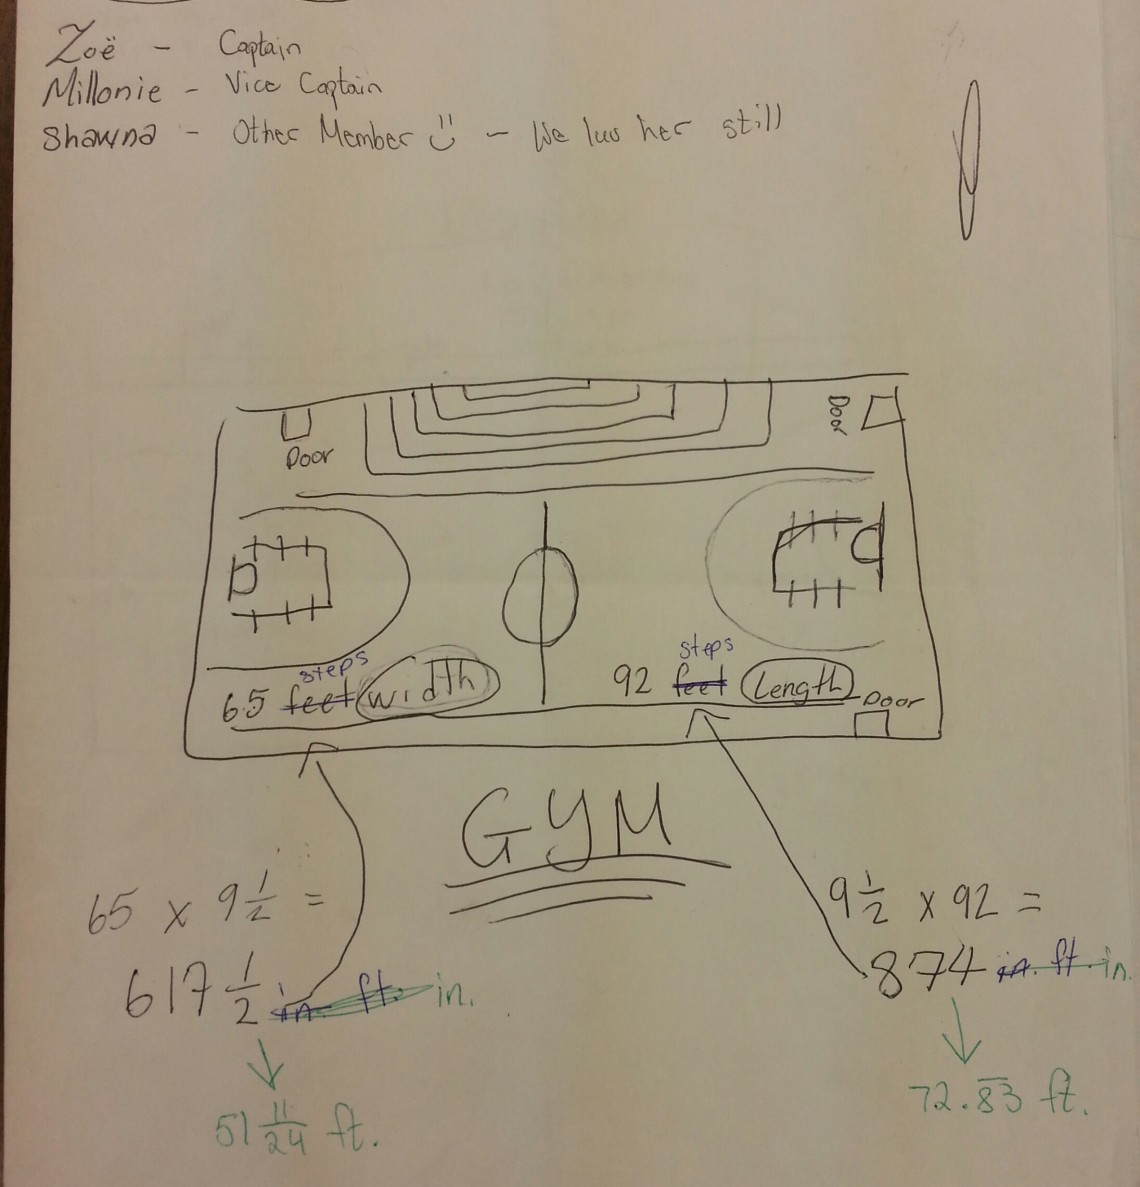 Zoë - Captain
Millonie - Vice Captain
Shawna - Other Member - We luv her still
Door
Door
steps
65 feet width
steps
92 feet Length
Door
GYM
65 x 9 1/2 =
617 1/2 in ft. in.
51 11/24 ft.
9 1/2 x 92 =
874 in. ft. in.
72.83 ft.